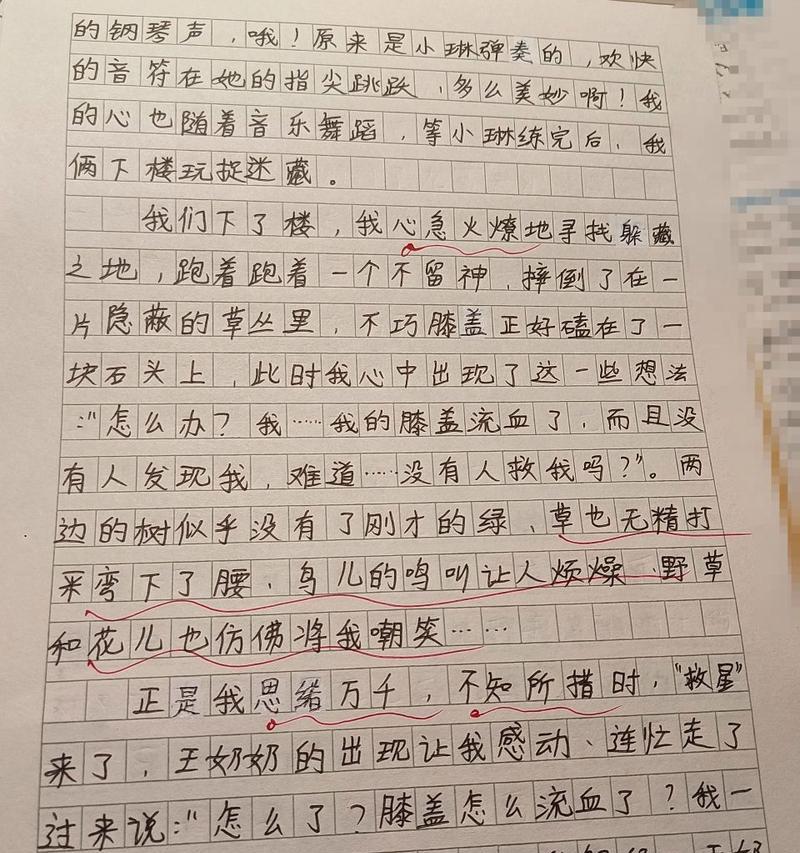 的钢琴声，哦！原来是小琳弹奏的，欢快
的音符在她的指尖跳跃，多么美妙啊！我
的心也随着音乐舞蹈，等小琳练完后，我
俩下楼玩捉迷藏。
我们下了楼，我心急火燎地寻找躲藏
之地，跑着跑着一个不留神，摔倒了在一
片隐蔽的草丛里，不巧膝盖正好磕在了一
块石头上，此时我心中出现了这一些想法
：“怎么办？我……我的膝盖流血了，而且没
有人发现我，难道……没有人救我吗？”。两
边的树似乎没有了刚才的绿，草也无精打
采弯下了腰，鸟儿的鸣叫让人烦燥，野草
和花儿也仿佛将我嘲笑……
正是我思绪万千，不知所措时，“救星”
来了，王奶奶的出现让我感动、连忙走了
过来说：“怎么了？膝盖怎么流血了？我一